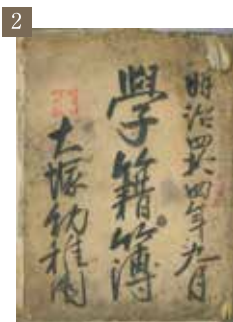 2
明治四十四年九月
學籍簿
大塚幼稚園